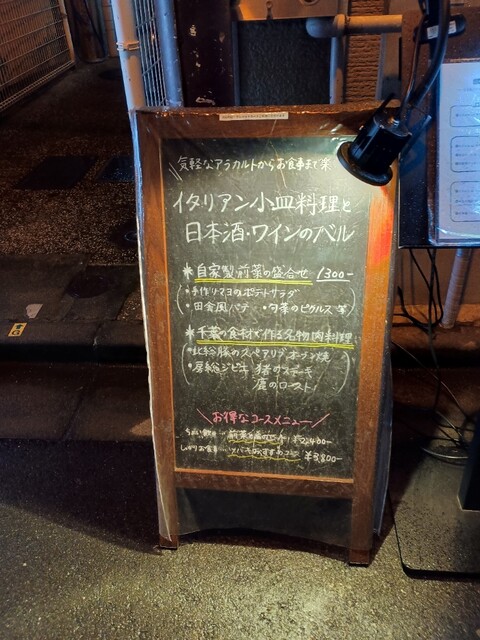 気軽なアラカルトからお食事まで楽
イタリアン小皿料理と
日本酒・ワインのバル
＊自家製前菜の盛合せ 1300-
・手作りマヨのポテトサラダ
・田舎風パテ ・旬菜のピクルス 等
＊千葉の食材で作る名物肉料理
・北総豚のスペアリブオーブン焼
・房総ジビエ 猪のステーキ
鹿のロースト
＼お得なコースメニュー／
ちょい飲み 前菜 ¥2,400-
しっかりお食事 ツバキおすすめコース ¥3,800-